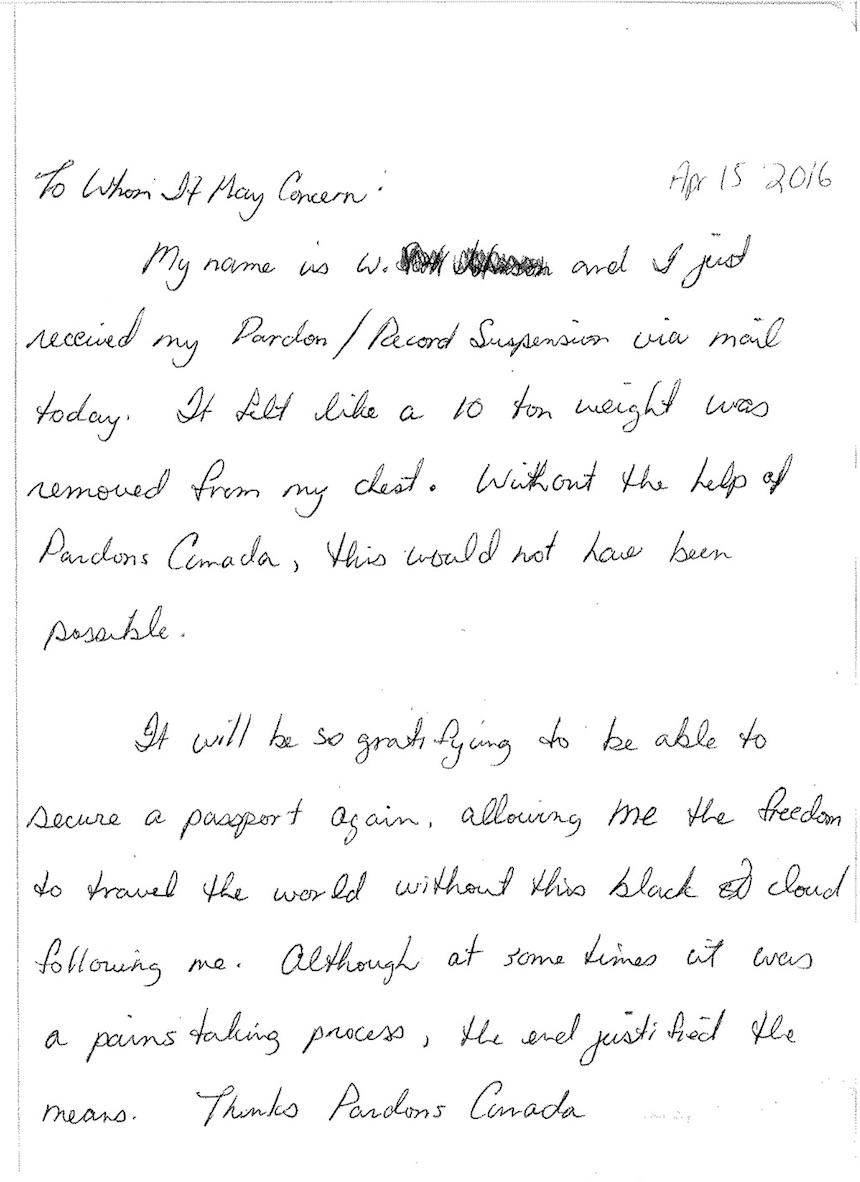 Apr 15 2016
To Whom It May Concern:
My name is W. and I just
received my Pardon/Record Suspension via mail
today. It felt like a 10 ton weight was
removed from my chest. Without the help of
Pardons Canada, this would not have been
possible.
It will be so gratifying to be able to
secure a passport again, allowing me the freedom
to travel the world without this black cloud
following me. Although at some times it was
a pains taking process, the end justified the
means. Thanks Pardons Canada